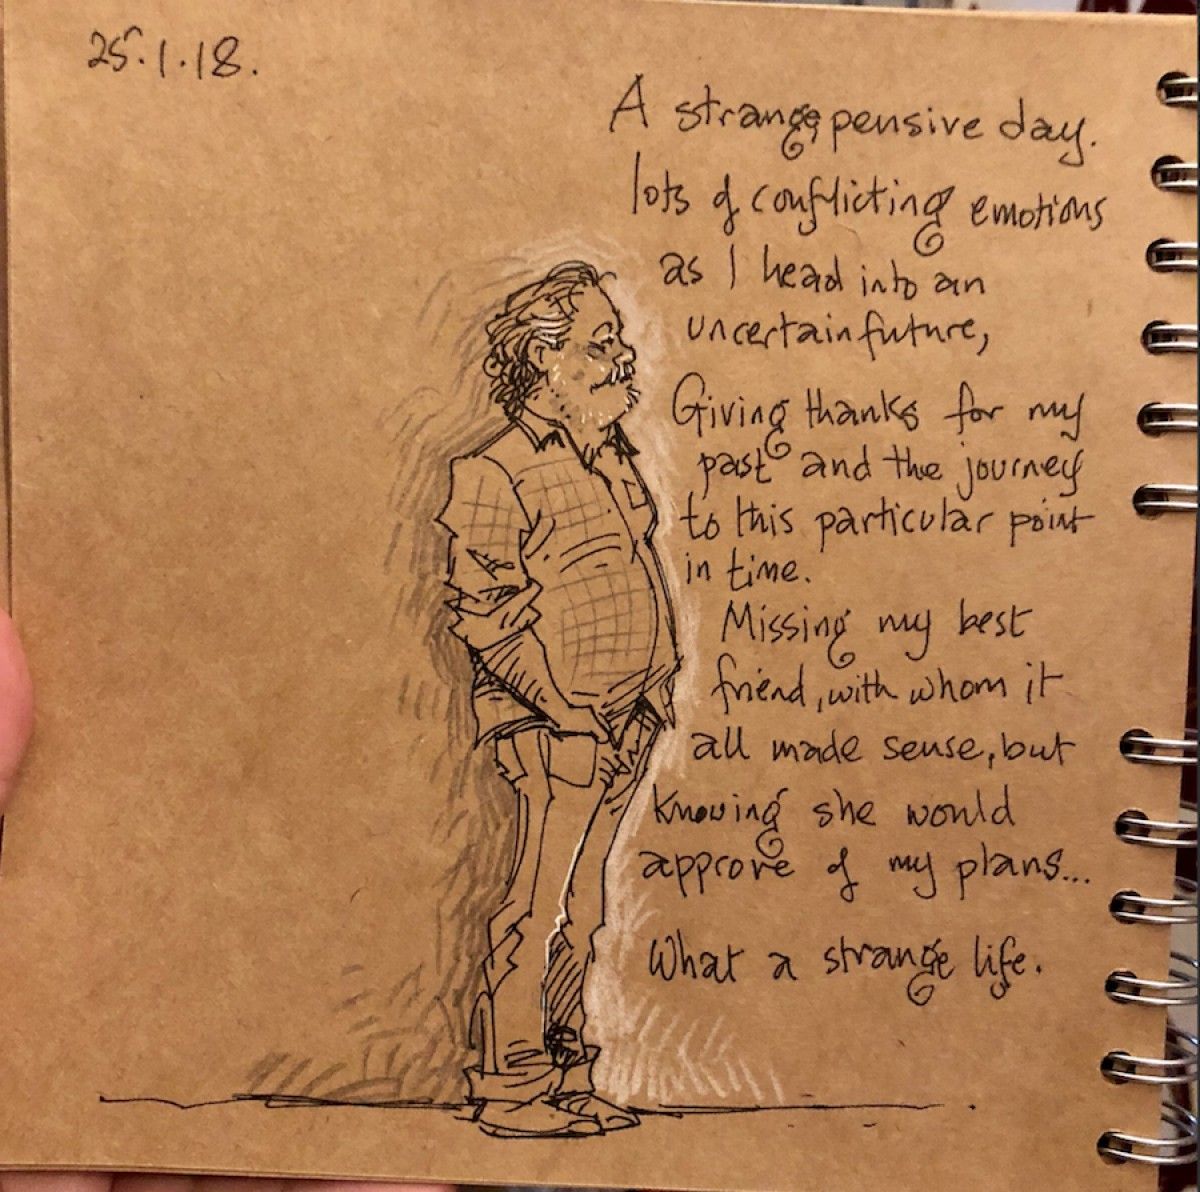 25.1.18.
A strange, pensive day.
lots of conflicting emotions
as I head into an
uncertain future,
Giving thanks for my
past and the journey
to this particular point
in time.
Missing my best
friend, with whom it
all made sense, but
knowing she would
approve of my plans...
What a strange life.